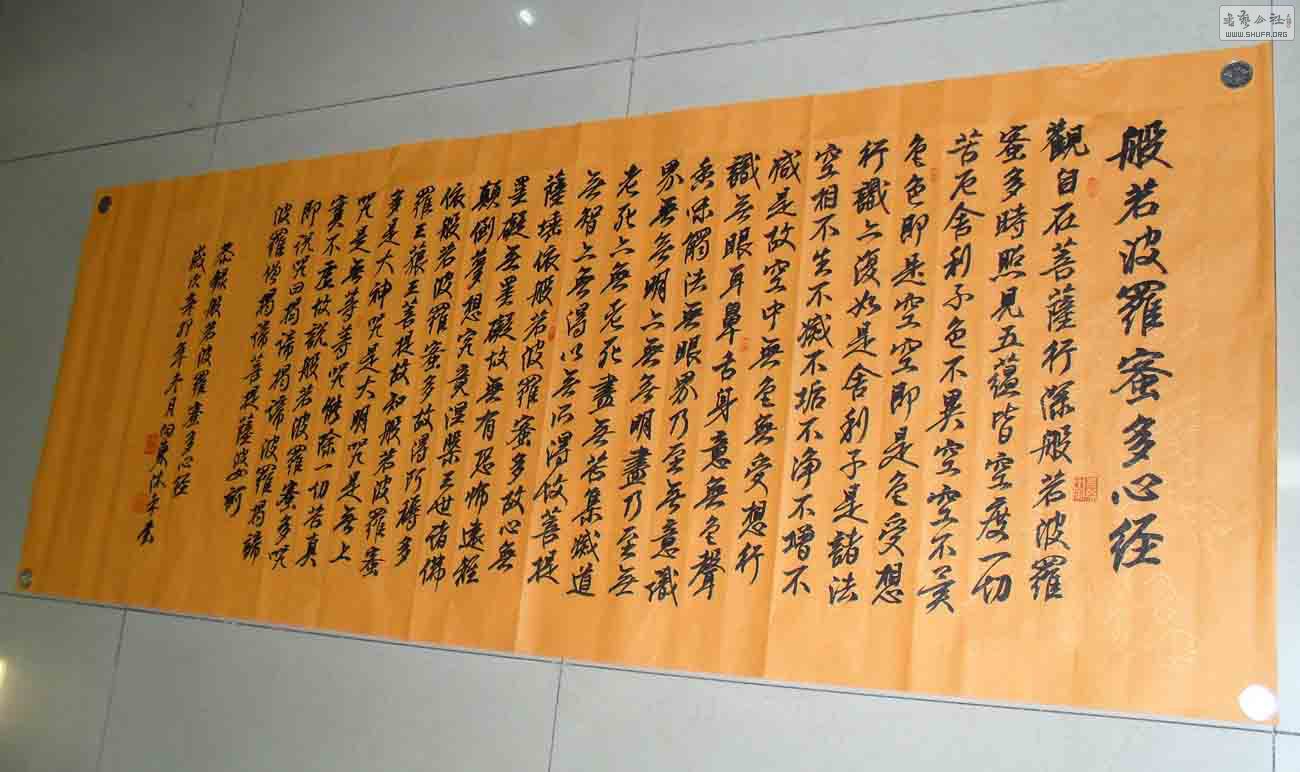 般若波羅蜜多心经
觀自在菩薩行深般若波羅
蜜多時照見五蕴皆空度一切
苦厄舍利子色不異空空不異
色色即是空空即是色受想
行識亦復如是舍利子是諸法
空相不生不滅不垢不净不增不
减是故空中無色無受想行
識無眼耳鼻舌身意無色聲
香味觸法無眼界乃至無意識
界無無明亦無無明盡乃至無
老死亦無老死盡無苦集滅道
無智亦無得以無所得故菩提
薩埵依般若波羅蜜多故心無
罣礙無罣礙故無有恐怖遠離
顛倒夢想究竟涅槃三世諸佛
依般若波羅蜜多故得阿耨多
羅三藐三菩提故知般若波羅蜜
多是大神咒是大明咒是無上
咒是無等等咒能除一切苦真
實不虛故説般若波羅蜜多咒
即説咒曰揭諦揭諦波羅揭諦
波羅僧揭諦菩提薩婆訶
恭録般若波羅蜜多心经
歲次辛卯年冬月向東沐手書
书艺公社
WWW.SHUFA.ORG